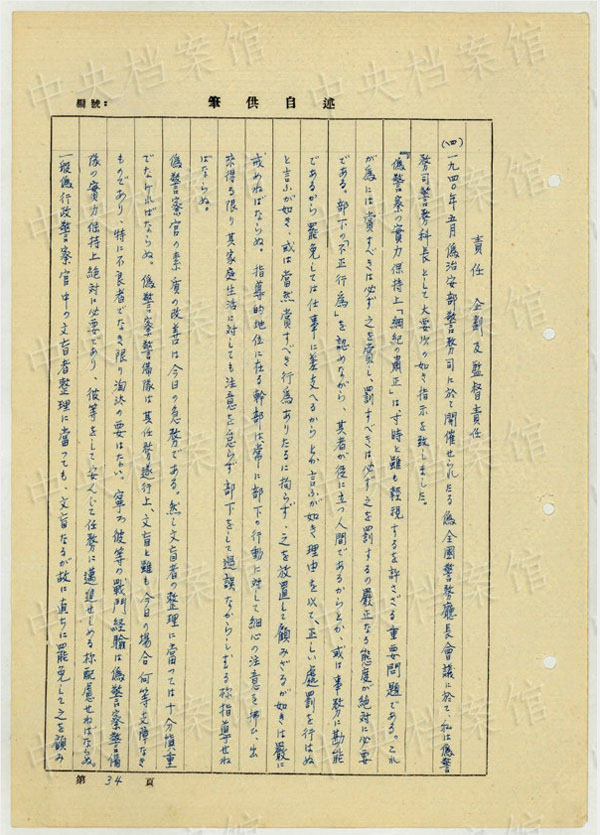 中央档案馆
編號：
筆供自述
責任　企劃及監督責任
(四)一九四〇年五月偽治安部警務司に於て開催せられたる偽全國警務廳長會議に於て、私は偽警
務司警務科長として大要次の如き指示を致しました。
『偽警察の實力保持上「綱紀の肅正」は寸時と雖も輕視するを許さざる重要問題である。これ
が為には賞すべきは必ず之を賞し、罰すべきは必ず之を罰するの嚴正なる態度が絶対に必要
である。部下の「不正行為」を認めながら、其者が役に立つ人間であるからとか、或は事務に勘能
であるから罷免しては仕事に差支へるからとか言ふが如き理由を以て、正しい處罰を行はぬ
と言ふが如き、或は當然賞すべき行為ありたるに拘らず、之を放置して顧みざるが如きは嚴に
戒めねばならぬ。指導的地位に在る幹部は常に部下の行動に対して細心の注意を拂ひ、出
来得る限り其家庭生活に対しても注意を怠らず部下をして過誤なからしむる称指導せね
ばならぬ。
偽警察官の素質の改善は今日の急務である。然し文盲者の整理に當っては十分慎重
でなければならぬ。偽警察警備隊は其任務遂行上、文盲と雖も今日の場合何等支障なき
ものであり、特に不良者でなき限り淘汰の要はない。寧ろ彼等の戰鬥経驗は偽警察警備
隊の實力保持上絶対に必要であり、彼等をして安んじて任務に邁進せしめる称配慮せねばならぬ。
一般偽行政警察官中の文盲者整理に當っても、文盲なるが故に直ちに罷免して之を顧み
第34頁